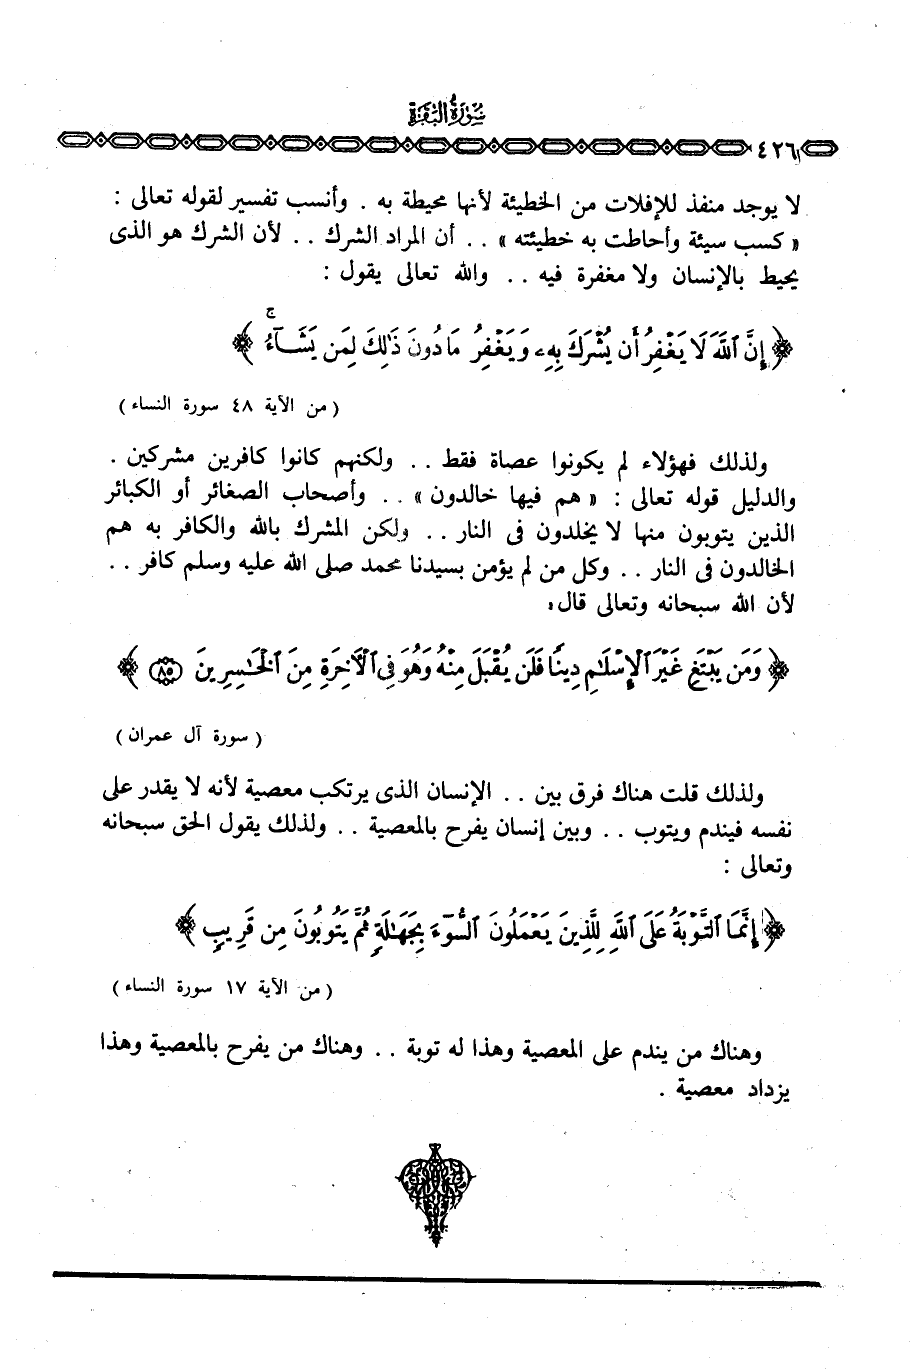 سورة البقرة
٤٢٦
لا يوجد منفذ للإفلات من الخطيئة لأنها محيطة به . وأنسب تفسير لقوله تعالى :
« كسب سيئة وأحاطت به خطيئته » . . أن المراد الشرك . . لأن الشرك هو الذى
يحيط بالإنسان ولا مغفرة فيه . . والله تعالى يقول :
﴿ إِنَّ ٱللَّهَ لَا يَغْفِرُ أَن يُشْرَكَ بِهِۦ وَيَغْفِرُ مَا دُونَ ذَٰلِكَ لِمَن يَشَآءُ ۚ ﴾
( من الآية ٤٨ سورة النساء )
ولذلك فهؤلاء لم يكونوا عصاة فقط . . ولكنهم كانوا كافرين مشركين .
والدليل قوله تعالى : « هم فيها خالدون » . . وأصحاب الصغائر أو الكبائر
الذين يتوبون منها لا يخلدون فى النار . . ولكن المشرك بالله والكافر به هم
الخالدون فى النار . . وكل من لم يؤمن بسيدنا محمد صلى الله عليه وسلم كافر . .
لأن الله سبحانه وتعالى قال :
﴿ وَمَن يَبْتَغِ غَيْرَ ٱلْإِسْلَٰمِ دِينًا فَلَن يُقْبَلَ مِنْهُ وَهُوَ فِى ٱلْآخِرَةِ مِنَ ٱلْخَٰسِرِينَ ٨٥ ﴾
( سورة آل عمران )
ولذلك قلت هناك فرق بين . . الإنسان الذى يرتكب معصية لأنه لا يقدر على
نفسه فيندم ويتوب . . وبين إنسان يفرح بالمعصية . . ولذلك يقول الحق سبحانه
وتعالى :
﴿ إِنَّمَا ٱلتَّوْبَةُ عَلَى ٱللَّهِ لِلَّذِينَ يَعْمَلُونَ ٱلسُّوٓءَ بِجَهَٰلَةٍ ثُمَّ يَتُوبُونَ مِن قَرِيبٍ ﴾
( من الآية ١٧ سورة النساء )
وهناك من يندم على المعصية وهذا له توبة . . وهناك من يفرح بالمعصية وهذا
يزداد معصية .